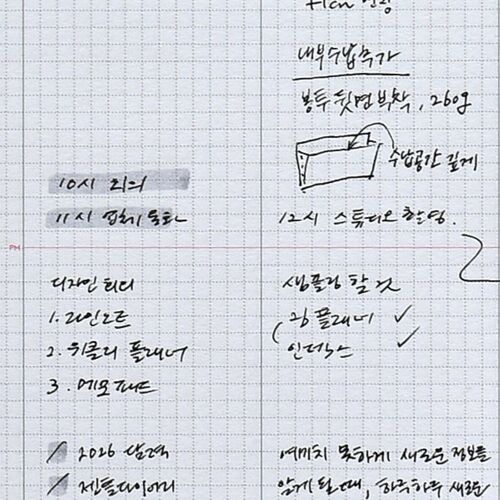 +1cm 연장
내부수납추가
봉투 뒷면 부착, 260g
수납공간 깊게
10시 회의
11시 업체 통화
12시 스튜디오 촬영.
PM
디자인 회의
1. 라인노트
2. 위클리 플래너
3. 메모패드
샘플링 할 것
링 플래너 ✓
인덱스 ✓
2026 달력
젠틀다이어리
예기치 못하게 새로운 정보를
알게 될 때, 하루하루 새로운